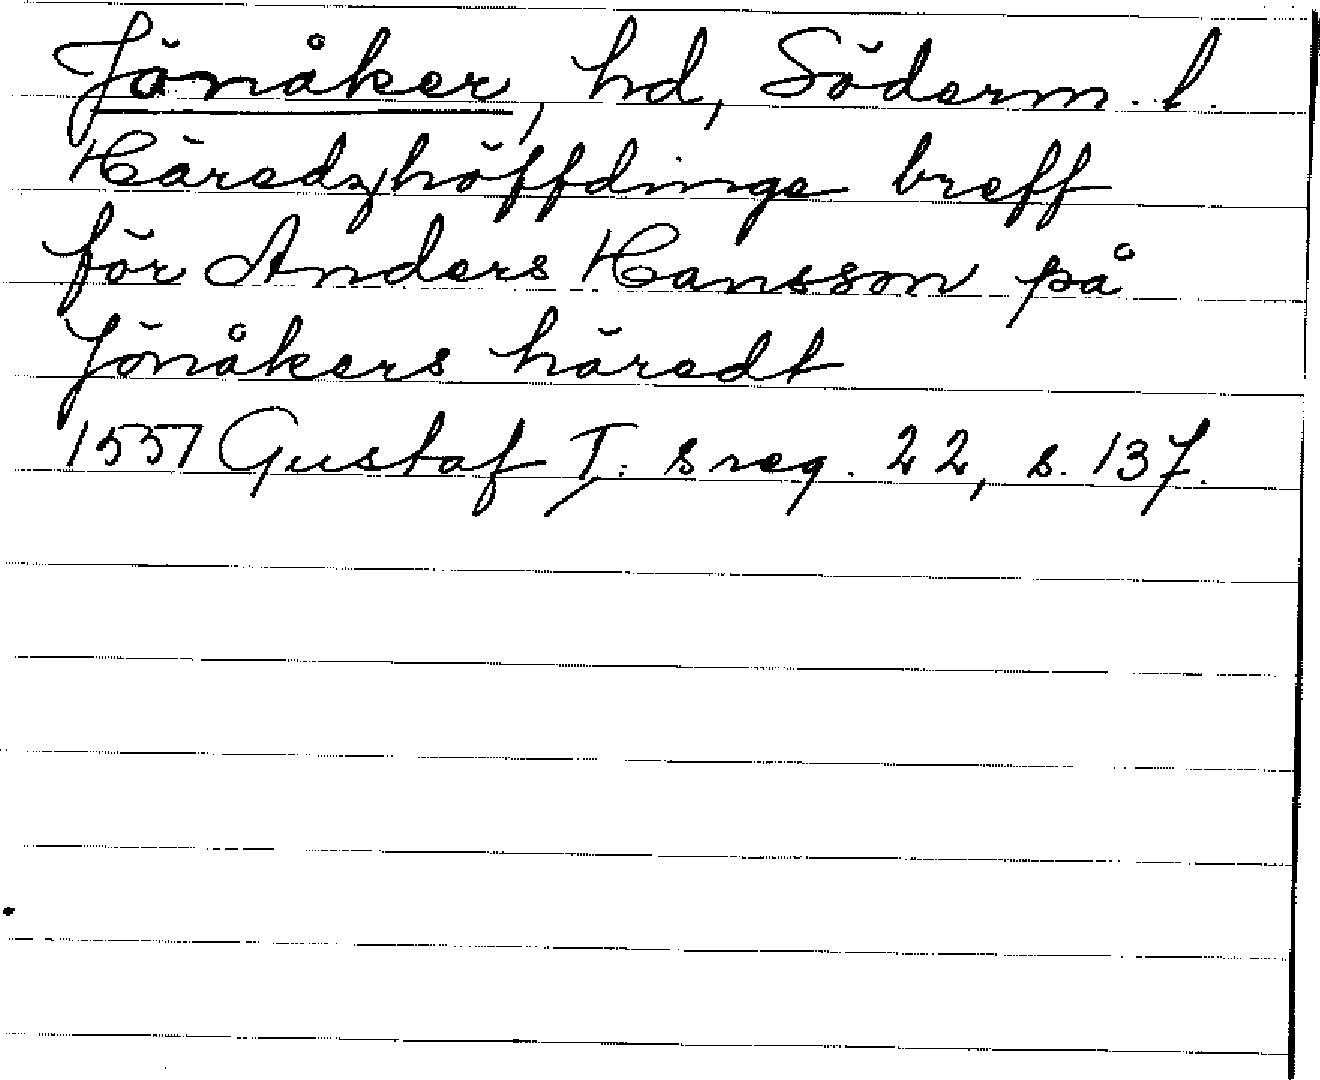 Jönåker, hd, Söderm. l.
Häredzhöffdinge breff
för Anders Hansson på
Jönåkers häredt
1557 Gustaf I: s reg. 22, s. 137.